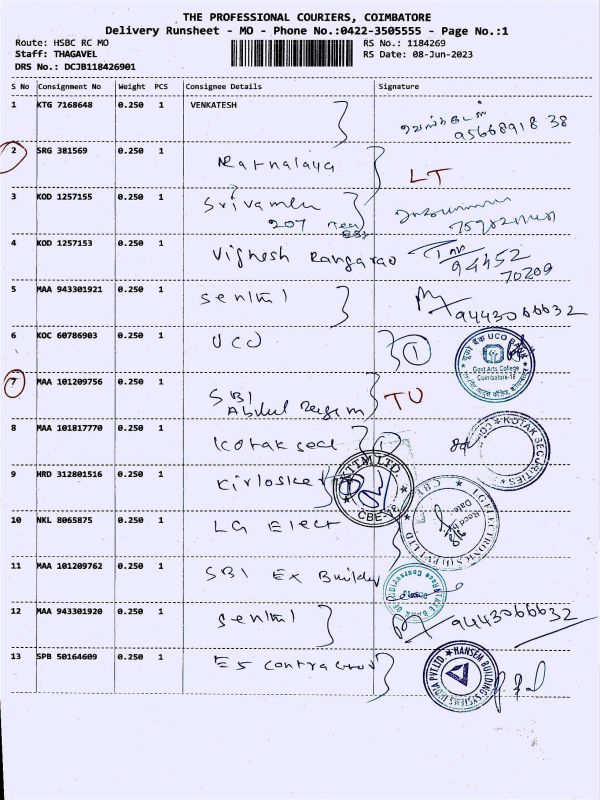 THE PROFESSIONAL COURIERS, COIMBATORE
Delivery Runsheet - MO - Phone No.:0422-3505555 - Page No.:1
Route: HSBC RC MO
RS No.: 1184269
Staff: THAGAVEL
RS Date: 08-Jun-2023
DRS No.: DCJB118426901
S No Consignment No Weight PCS Consignee Details Signature
1 KTG 7168648 0.250 1 VENKATESH
2 SRG 381569 0.250 1 Ratnalaya LT
3 KOD 1257155 0.250 1
207
4 KOD 1257153 0.250 1 Vignesh Rangarao 94452
70209
5 MAA 943301921 0.250 1 Senthil 9443066632
6 KOC 60786903 0.250 1 UCO 1 UCO BANK
Govt Arts College
Coimbatore-18
7 MAA 101209756 0.250 1 SBI TU
Abdul
8 MAA 101817770 0.250 1 Kotak sec KOTAK SECURITIES
9 HRD 312801516 0.250 1 Kirlosker CBE-18
10 NKL 8065875 0.250 1 LG Elect LG ELECTRONICS (I) PVT LTD CBE
11 MAA 101209762 0.250 1 SBI Ex Builder
12 MAA 943301920 0.250 1 Senthil 9443066632
13 SPB 50164609 0.250 1 HANSEM BUILDING SYSTEMS INDIA PVT LTD